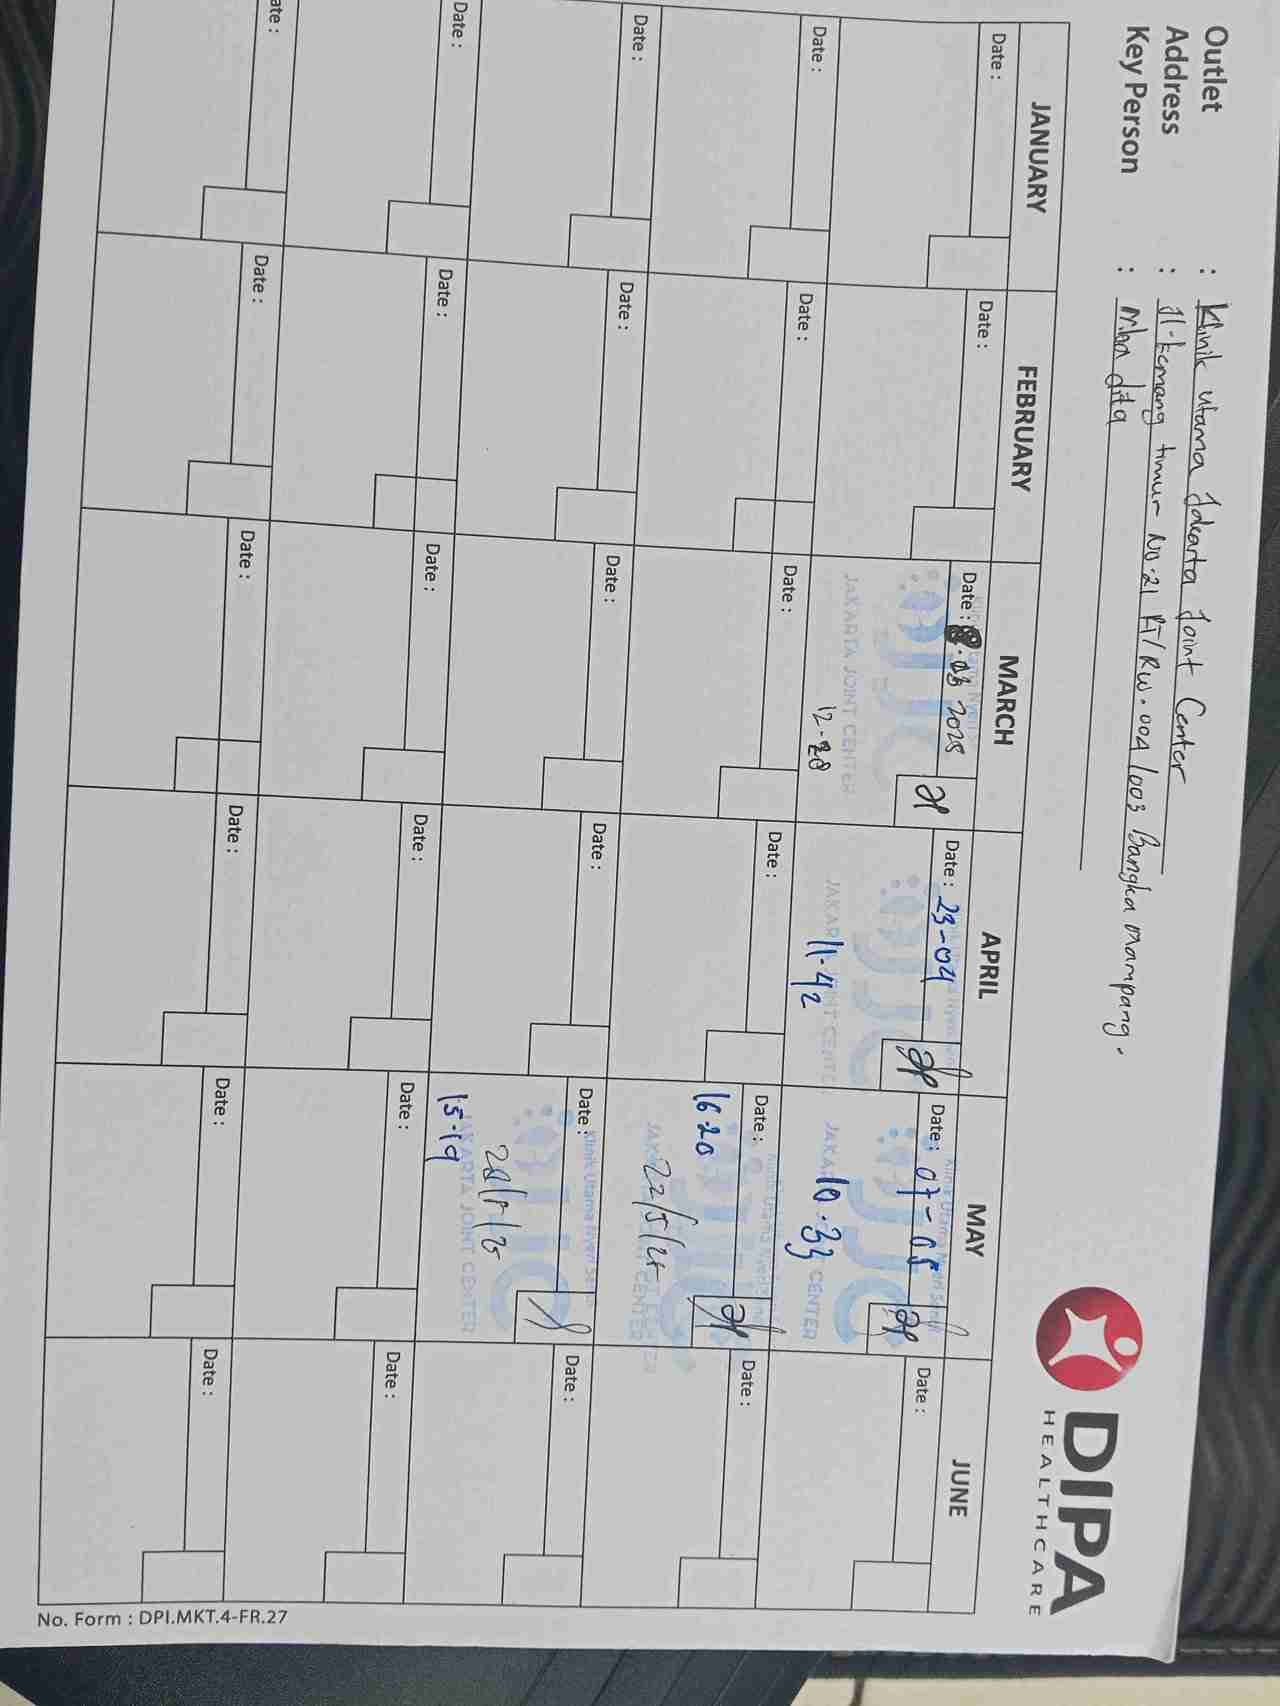 Outlet : Klinik Utama Jakarta Joint Center
Address : Jl. Kemang timur No.21 RT/RW.004/003 Bangka mampang.
Key Person : dita
DIPA
HEALTHCARE
JANUARY FEBRUARY MARCH APRIL MAY JUNE
Date : Date : Date : .03 2025 Date : 23-04 Date : 07-05 Date :
Klinik Utama Nyeri
JJC JJC JJC
JAKARTA JOINT CENTER JAKARTA JOINT CENTER JAKARTA JOINT CENTER
12-28 11-42 10.33
Date : Date : Date : Date : Date : Date :
16.20
22/5/25
Date : Date : Date : Date : Date : Date :
Klinik Utama Nyeri
JAKARTA JOINT CENTER
15-19
Date : Date : Date : Date : Date : Date :
Date : Date : Date : Date : Date : Date :
No. Form : DPI.MKT.4-FR.27